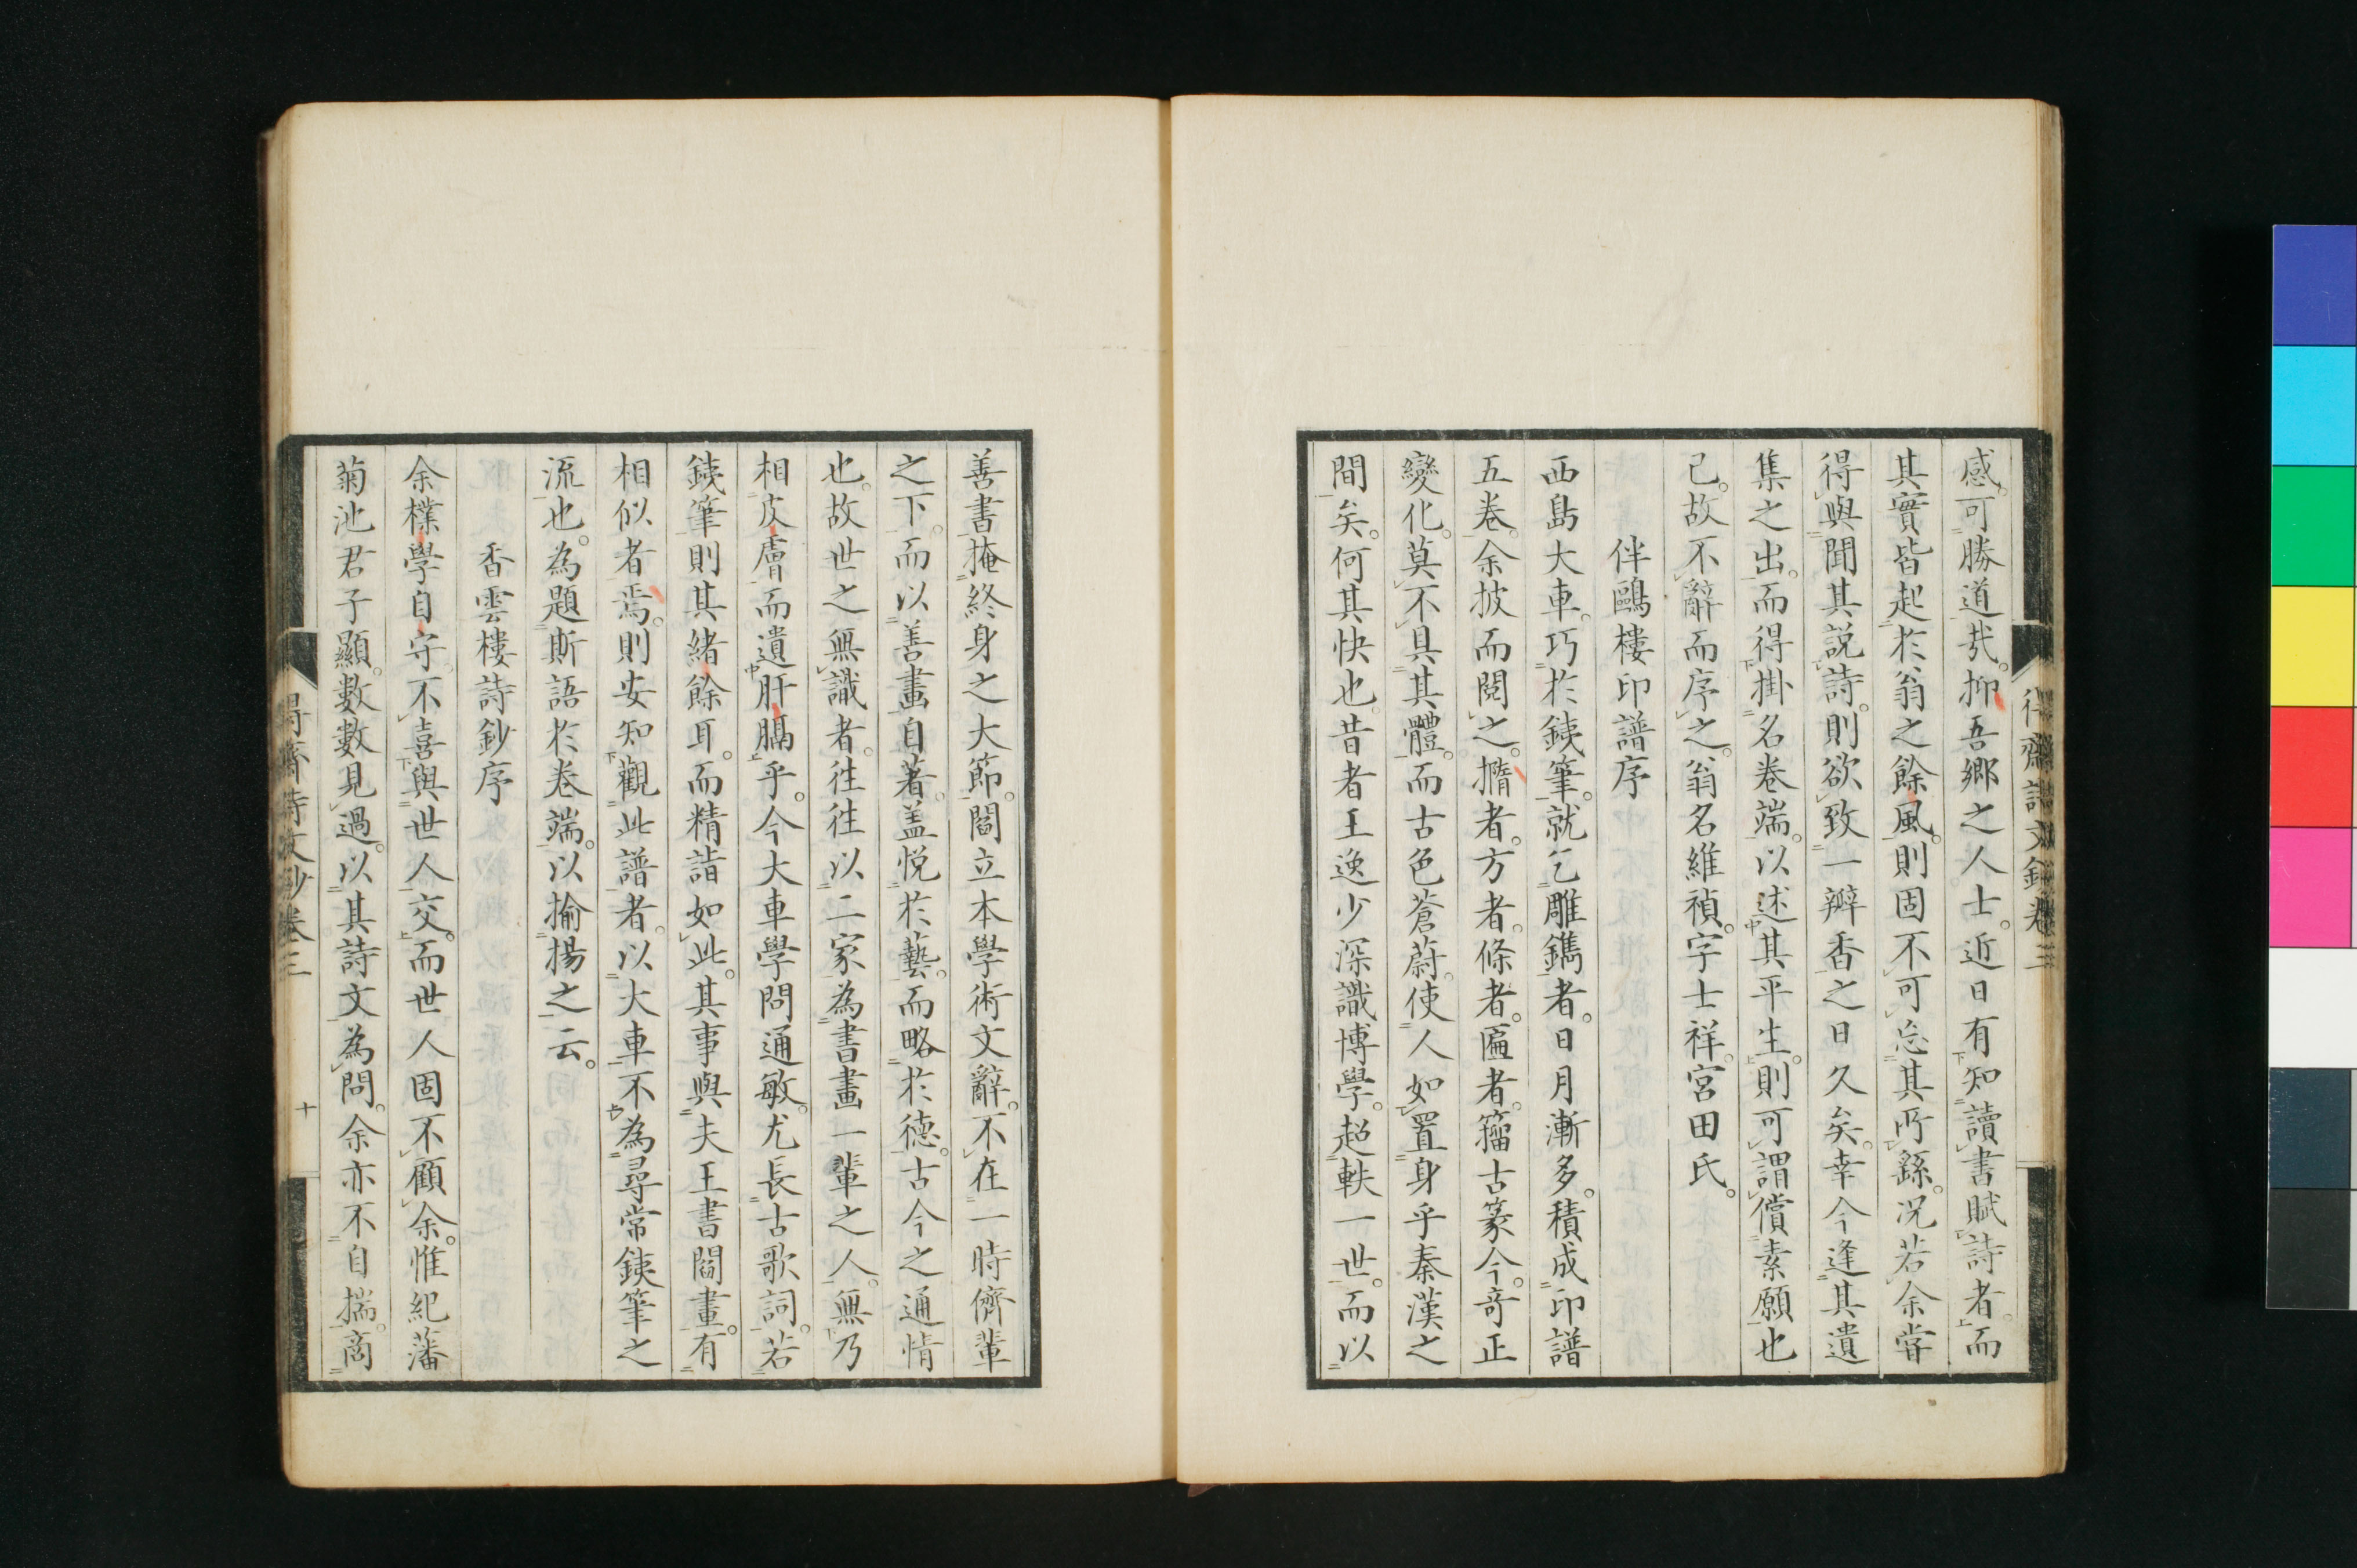 感。可勝道哉。抑吾鄉之人士。近日有知讀書賦詩者。而
其實皆起於翁之餘風。則固不可忘其所繇。況若余嘗
得與聞其説詩。則欲致一瓣香之日久矣。幸今逢其遺
集之出。而得掛名卷端。以述其平生。則可謂償素願也
已。故不辭而序之。翁名維禎。字士祥。宮田氏。
伴鷗樓印譜序
西島大車。巧於鐵筆。就乞雕鐫者。日月漸多。積成印譜
五卷。余披而閲之。撱者。方者。條者。匾者。籀古篆今。奇正
變化。莫不具其體。而古色蒼蔚。使人如置身乎秦漢之
間矣。何其快也。昔者王逸少深識博學。超軼一世。而以
善書掩終身之大節。閻立本學術文辭。不在一時儕輩
之下。而以善畫自著。盖悦於藝。而略於德。古今之通情
也。故世之無識者。往往以二家為書畫一輩之人。無乃
相皮膚而遺肝膈乎。今大車學問通敏。尤長古歌詞。若
鐵筆則其緒餘耳。而精詣如此。其事與夫王書閻畫。有
相似者焉。則安知觀此譜者。以大車不為尋常鐵筆之
流也。為題斯語於卷端。以揄揚之云。
香雲樓詩鈔序
余樸學自守。不喜與世人交。而世人固不顧余。惟紀藩
菊池君子顯。數數見過。以其詩文為問。余亦不自揣。商
詩文鈔卷三 十